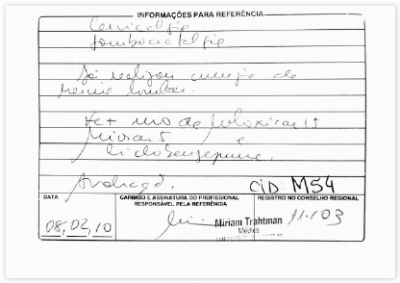 INFORMAÇÕES PARA REFERÊNCIA
Cervicalgia
Lombociatalgia
Já realizou cirurgia de
lombar.
uso de Meloxicam 15
e
Ciclobenzaprina.
CID: M54
DATA CARIMBO E ASSINATURA DO PROFISSIONAL RESPONSÁVEL PELA REFERÊNCIA REGISTRO NO CONSELHO REGIONAL
08,02,10 Miriam Trahtman 11.103
Médica